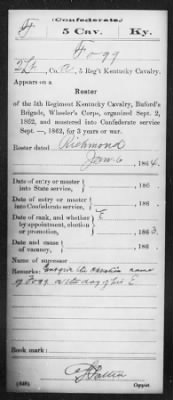 (Confederate.)
F 5 Cav. Ky.
Fogg
2 Lt, Co. A, 5 Reg't Kentucky Cavalry.
Appears on a
Roster
of the 5th Regiment Kentucky Cavalry, Buford's
Brigade, Wheeler's Corps, organized Sept. 2,
1862, and mustered into Confederate service
Sept. —, 1862, for 3 years or war.
Roster dated Richmond
Jan 6, 1864.
Date of entry or muster
into State service, 186
Date of entry or muster
into Confederate service, 186
Date of rank, and whether
by appointment, election
or promotion, E 1863.
Date and cause
of vacancy, 186
Name of successor
Remarks: name
of Fogg date day of his E.
Book mark:
(640) Copyist